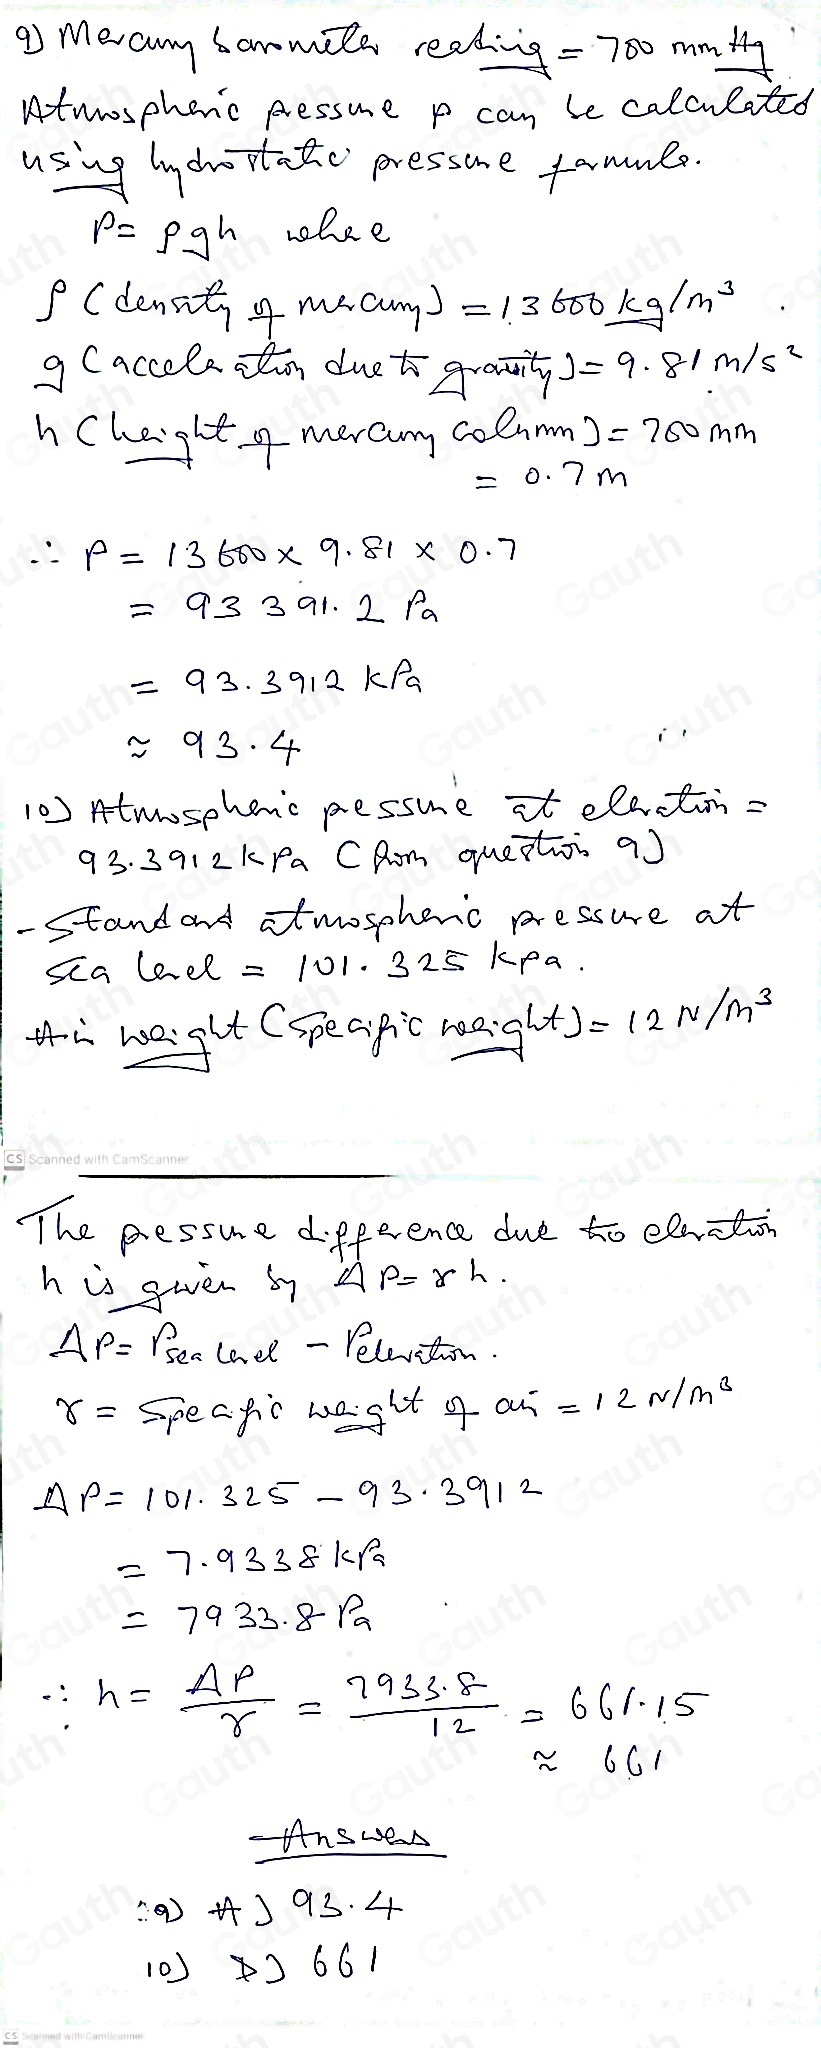 9) Mercury barometer reading = 700 mm Hg
Atmospheric pressure p can be calculated
using hydrostatic pressure formula.
P = ρgh where
ρ (density of mercury) = 13600 kg/m³
g (acceleration due to gravity) = 9.81 m/s²
h (height of mercury column) = 700 mm
= 0.7 m
∴ P = 13600 × 9.81 × 0.7
= 93391.2 Pa
= 93.3912 kPa
≈ 93.4
10) Atmospheric pressure at elevation =
93.3912 kPa (from question 9)
- Standard atmospheric pressure at
sea level = 101.325 kpa.
Air weight (specific weight) = 12 N/m³
CS Scanned with CamScanner
The pressure difference due to elevation
h is given by ΔP = γh.
ΔP = Psea level - Pelevation.
γ = specific weight of air = 12 N/m³
ΔP = 101.325 - 93.3912
= 7.9338 kPa
= 7933.8 Pa
∴ h = ΔP/γ = 7933.8/12 = 661.15
≈ 661
Answers
9) A) 93.4
10) D) 661
CS Scanned with CamScanner